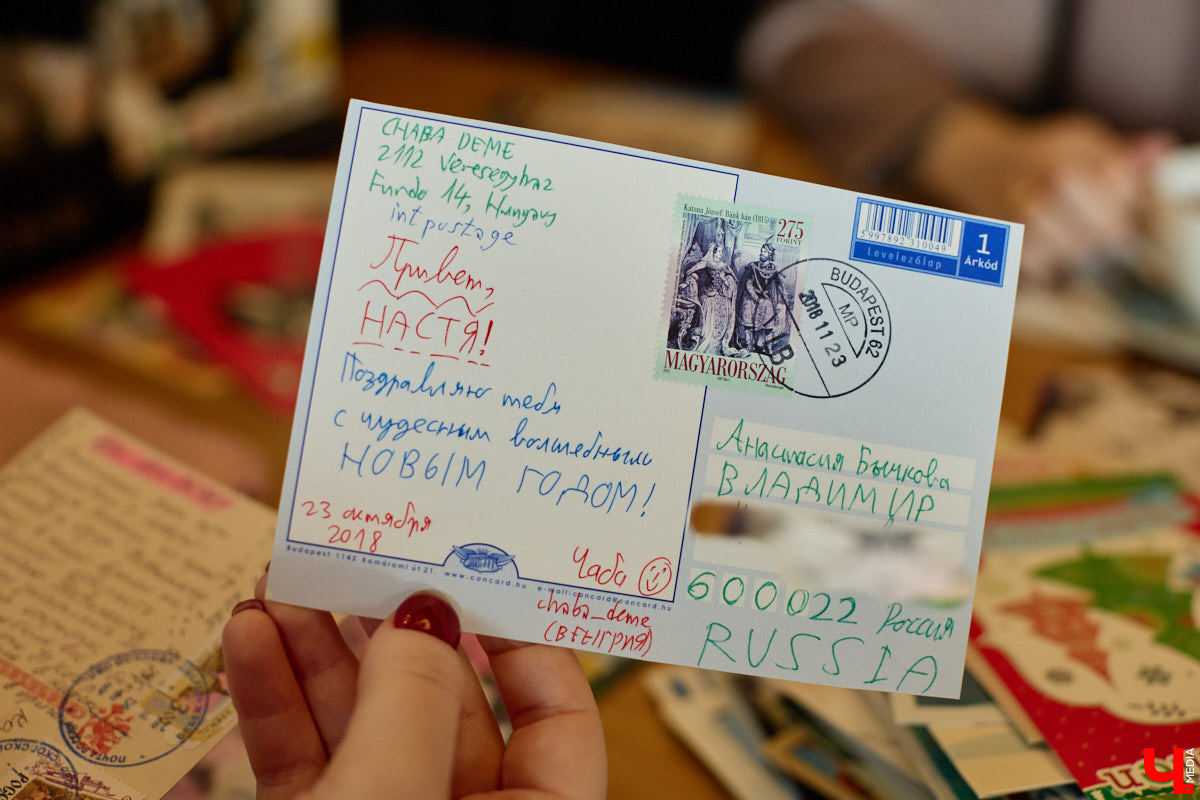 CHABA DEME
2112 Veresegyhaz
Fundo 14, Hungary
int postage
Привет,
НАСТЯ!
Поздравляю тебя
с чудесным волшебным
НОВЫМ ГОДОМ!
23 октября
2018
Чаба
chaba_deme
(ВЕНГРИЯ)
Budapest 1142 Komáromi út 21. www.concard.hu e-mail:concard@concard.hu
Katona József: Bánk bán (1815)
275
FORINT
MAGYARORSZÁG
BUDAPEST 62
MP
2018 11 23
LB
5997892 310049
Levelezőlap
1
Árkód
Анастасия Бычкова
ВЛАДИМИР
600022 Россия
RUSSIA
Ч MEDIA